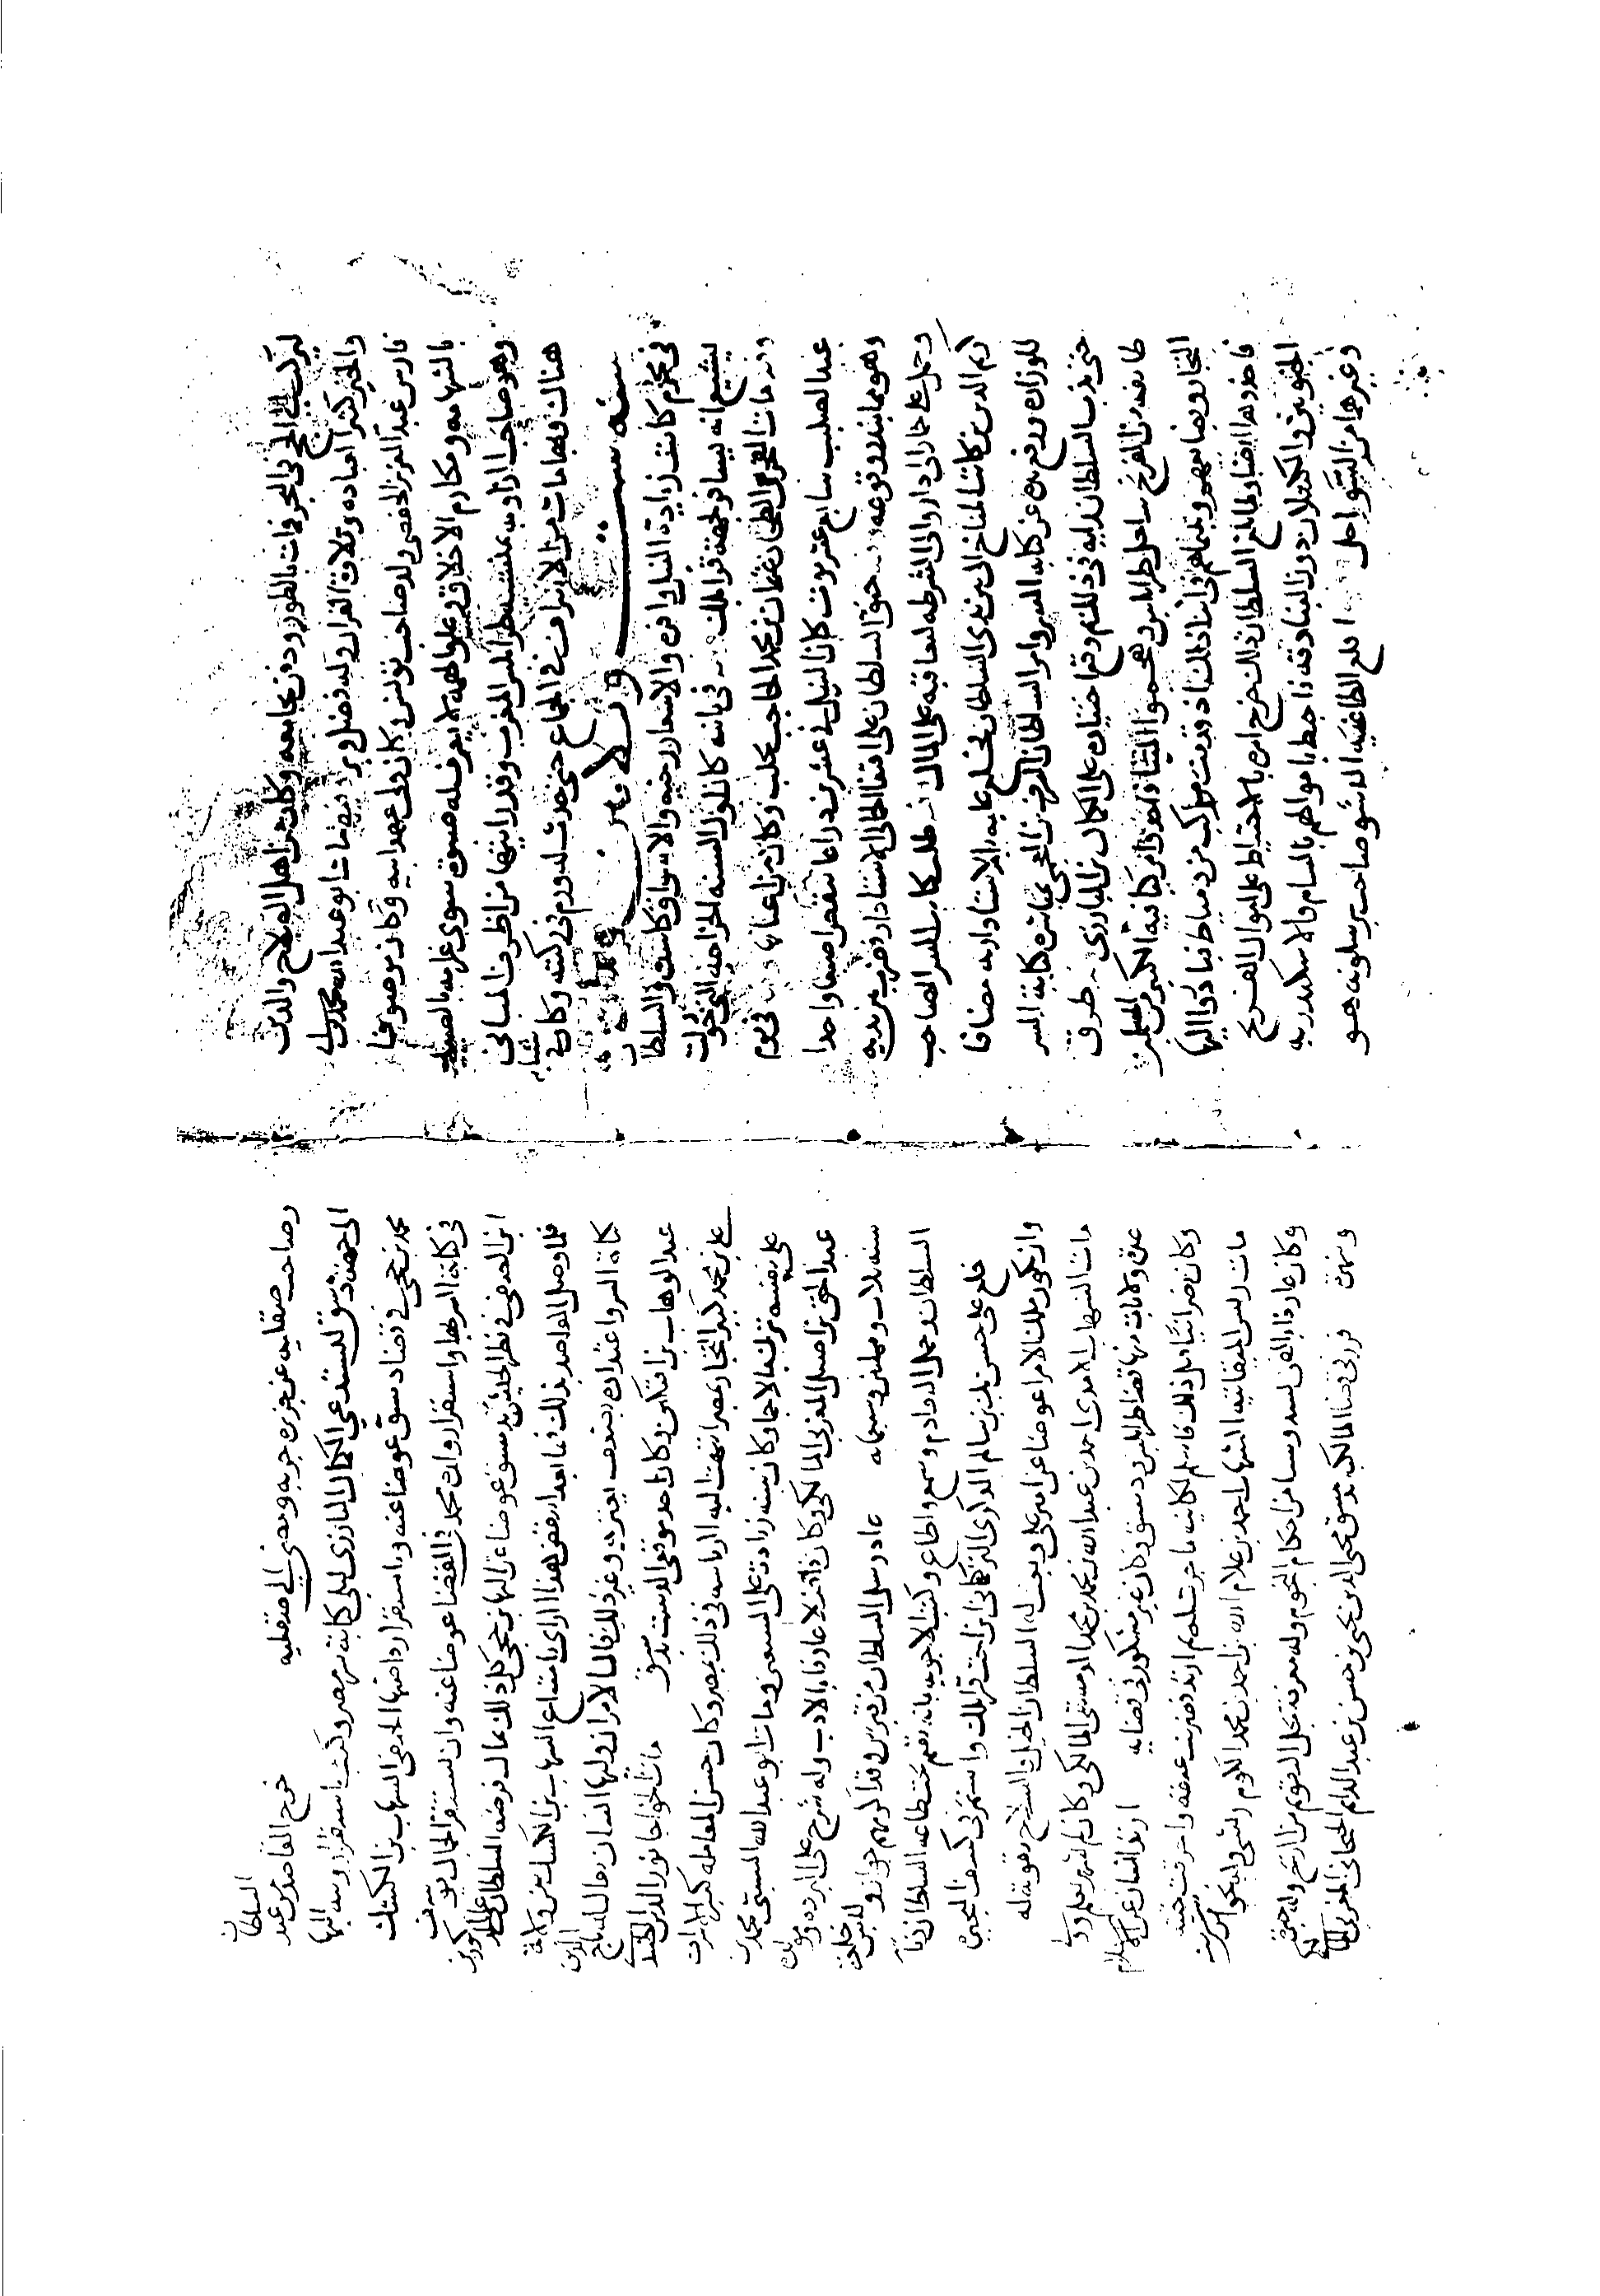 ليركب في البحر فمات بالطور ودفن بجامعه وكان من اهل الصلاح والدين
والخير كثير العبادة وتلاوة القران وله فضل وبر ومات ابو عبد الله محمد بن
فارس عبد العزيز الحفصي ولد صاحب تونس وكان ولي عهد ابيه وكان موصوفا
بالشهامة ومكارم الاخلاق وعلو الهمة لا يعرف له صبوة سوى غرامه بالصيد
وهو صاحب الزاوية بمنتسر طرابلس المغرب وقد رايتها من اظرف المباني
هناك وبها مات من الاشراف في الجامع حتى حدث له ورم في ركبته وكان في شبابه
سنة ثلاث وثلاثين
في محرم كانت زيادة النيل وافرة والاسعار رخية والاسواق كاسدة والسلطان
يشيع انه يسافر لجهة قرايلك في اثنائه كان اول السنة الخراجية التي حولت
وفيه مات الفخر بن الطحان عثمان بن محمد الحاجب بحلب وكان من اعيانها في يوم
عيد الصليب سابع عشر توت كان النيل في عشرين ذراعا تنقص اصبعا واحدا
وهو مما يندر وقوعه حنق السلطان على اقبغا الجمالي الاستادار فضرب بين يديه
وحمل على حمار الى دار والي الشرطة لمعاقبه على المال طلب كاتب السر الصاحب
كريم الدين بن كاتب المناخ الى بين يدي السلطان فخلع عليه بالاستادارية مضافا
للوزارة ورفع يده عن كتابة السر وامر السلطان الشرف بن العجمي بمباشرة كتابة السر
حتى ندب السلطان اليه في ذلك ثم وقع اختياره على الكمال بن البارزي طرق
طائفة من الفرنج ساحل طرابلس وهجموا الميناء فاخذوا مركبا فيه الكثير من المسلمين
التجار وبضايعهم وبلغهم في اثناء ذلك ان قدمت مركب من دمياط فبادروا اليها
فاخذوها ايضا ولما بلغ السلطان ذلك خرج امره بالاحتياط على اموال الفرنج
الجنويين والكيتلان دون البنادقة فاحيط باموالهم بالشام والاسكندرية
وغيرها من السواحل اطلع الطاغية الدشو صاحب برسلونه هو
وصاحب صقلية عن جزيرة جربة ومضى الى صقلية خرج القاصد من عند السلطان
الى جهة دمشق ليستدعي الكمال البارزي ليلي كتابة سر مصر وكتب باستقرار ولده البهاء
محمد بن حجي في قضاء دمشق عوضا عنه وباستقرار قاضيها الحنفي الشهاب بن الكشك
في كتابة السر بها واستقرار ولده محمد في القضاء عوضا عنه وان يستقر الجمال يوسف
ابن الصفي في نظر الجيش بدمشق عوضا عن البهاء بن حجي كل ذلك بمال فرضه السلطان عليهم
فلما وصل القاصد بذلك فما بعد ان نقض هذا الراي بامتناع الشهاب بن الكشك من ولاية
كتابة السر واعتذاره بضعف بصره وغير ذلك فال الامر ان وليها انسان يقال له تاج الدين
عبد الوهاب بن افتكين وكان احد موقعي الدست بدمشق مات الخواجا نور الدين الطنبدي
علي بن محمد كبير التجار بمصر انتهت اليه الرياسة في ذلك بمصر وكان حسن المعاملة كثير الاسراف
على نفسه ترك مالا جما وكان سنه زيادة على السبعين ومات ابو عبد الله السبتي محمد بن
عبد الحق بن اصيل المغربي المالكي وكان فاضلا عارفا بالادب وله شرح على البردة ومولده
سنة ثلاث وثمانين وسبعمائة عاد رسل السلطان من قبرس وقد اكرمهم جوانو ولبس خلعة
السلطان وحمل القادم وسمع واطاع وكتب الاجوبة بانه مقيم تحت طاعة السلطان
خلع على حسن بك بن سالم الدوكري التركماني ابن اخت قرايلك واستمر في كشف البحيرة
وان يكون ملك الامراء عوضا عن امير علي وبعث له السلطان الخيل والسلاح تقوية له
مات الشهاب الاموي احمد بن عبد الله بن محمد بن محمد الدمشقي المالكي وكان لم يشتهر بعلم وولي
عدة ولايات منها قضا طرابلس ودمشق وكان غير مشكور في قضايه ارتد انسان عن الاسلام
وكان نصرانيا قبل ذلك فاسلم لكاينة ما جرت له ثم ارتد فضربت عنقه واحرقت جثته
مات رئيس الميقاتية الشهاب احمد بن غلام الله بن احمد بن محمد الكوم ريشي وله نحو خمسين
وكان عارفا بالفن يسد وسيما من احكام النجوم وله معرفة بحل التقويم من الزيج وله حنتة
ومنهن قرر في قضا المالكية بدمشق محيي الدين يحيى بن حسن بن عبد الدايم الحيحاني المغربي